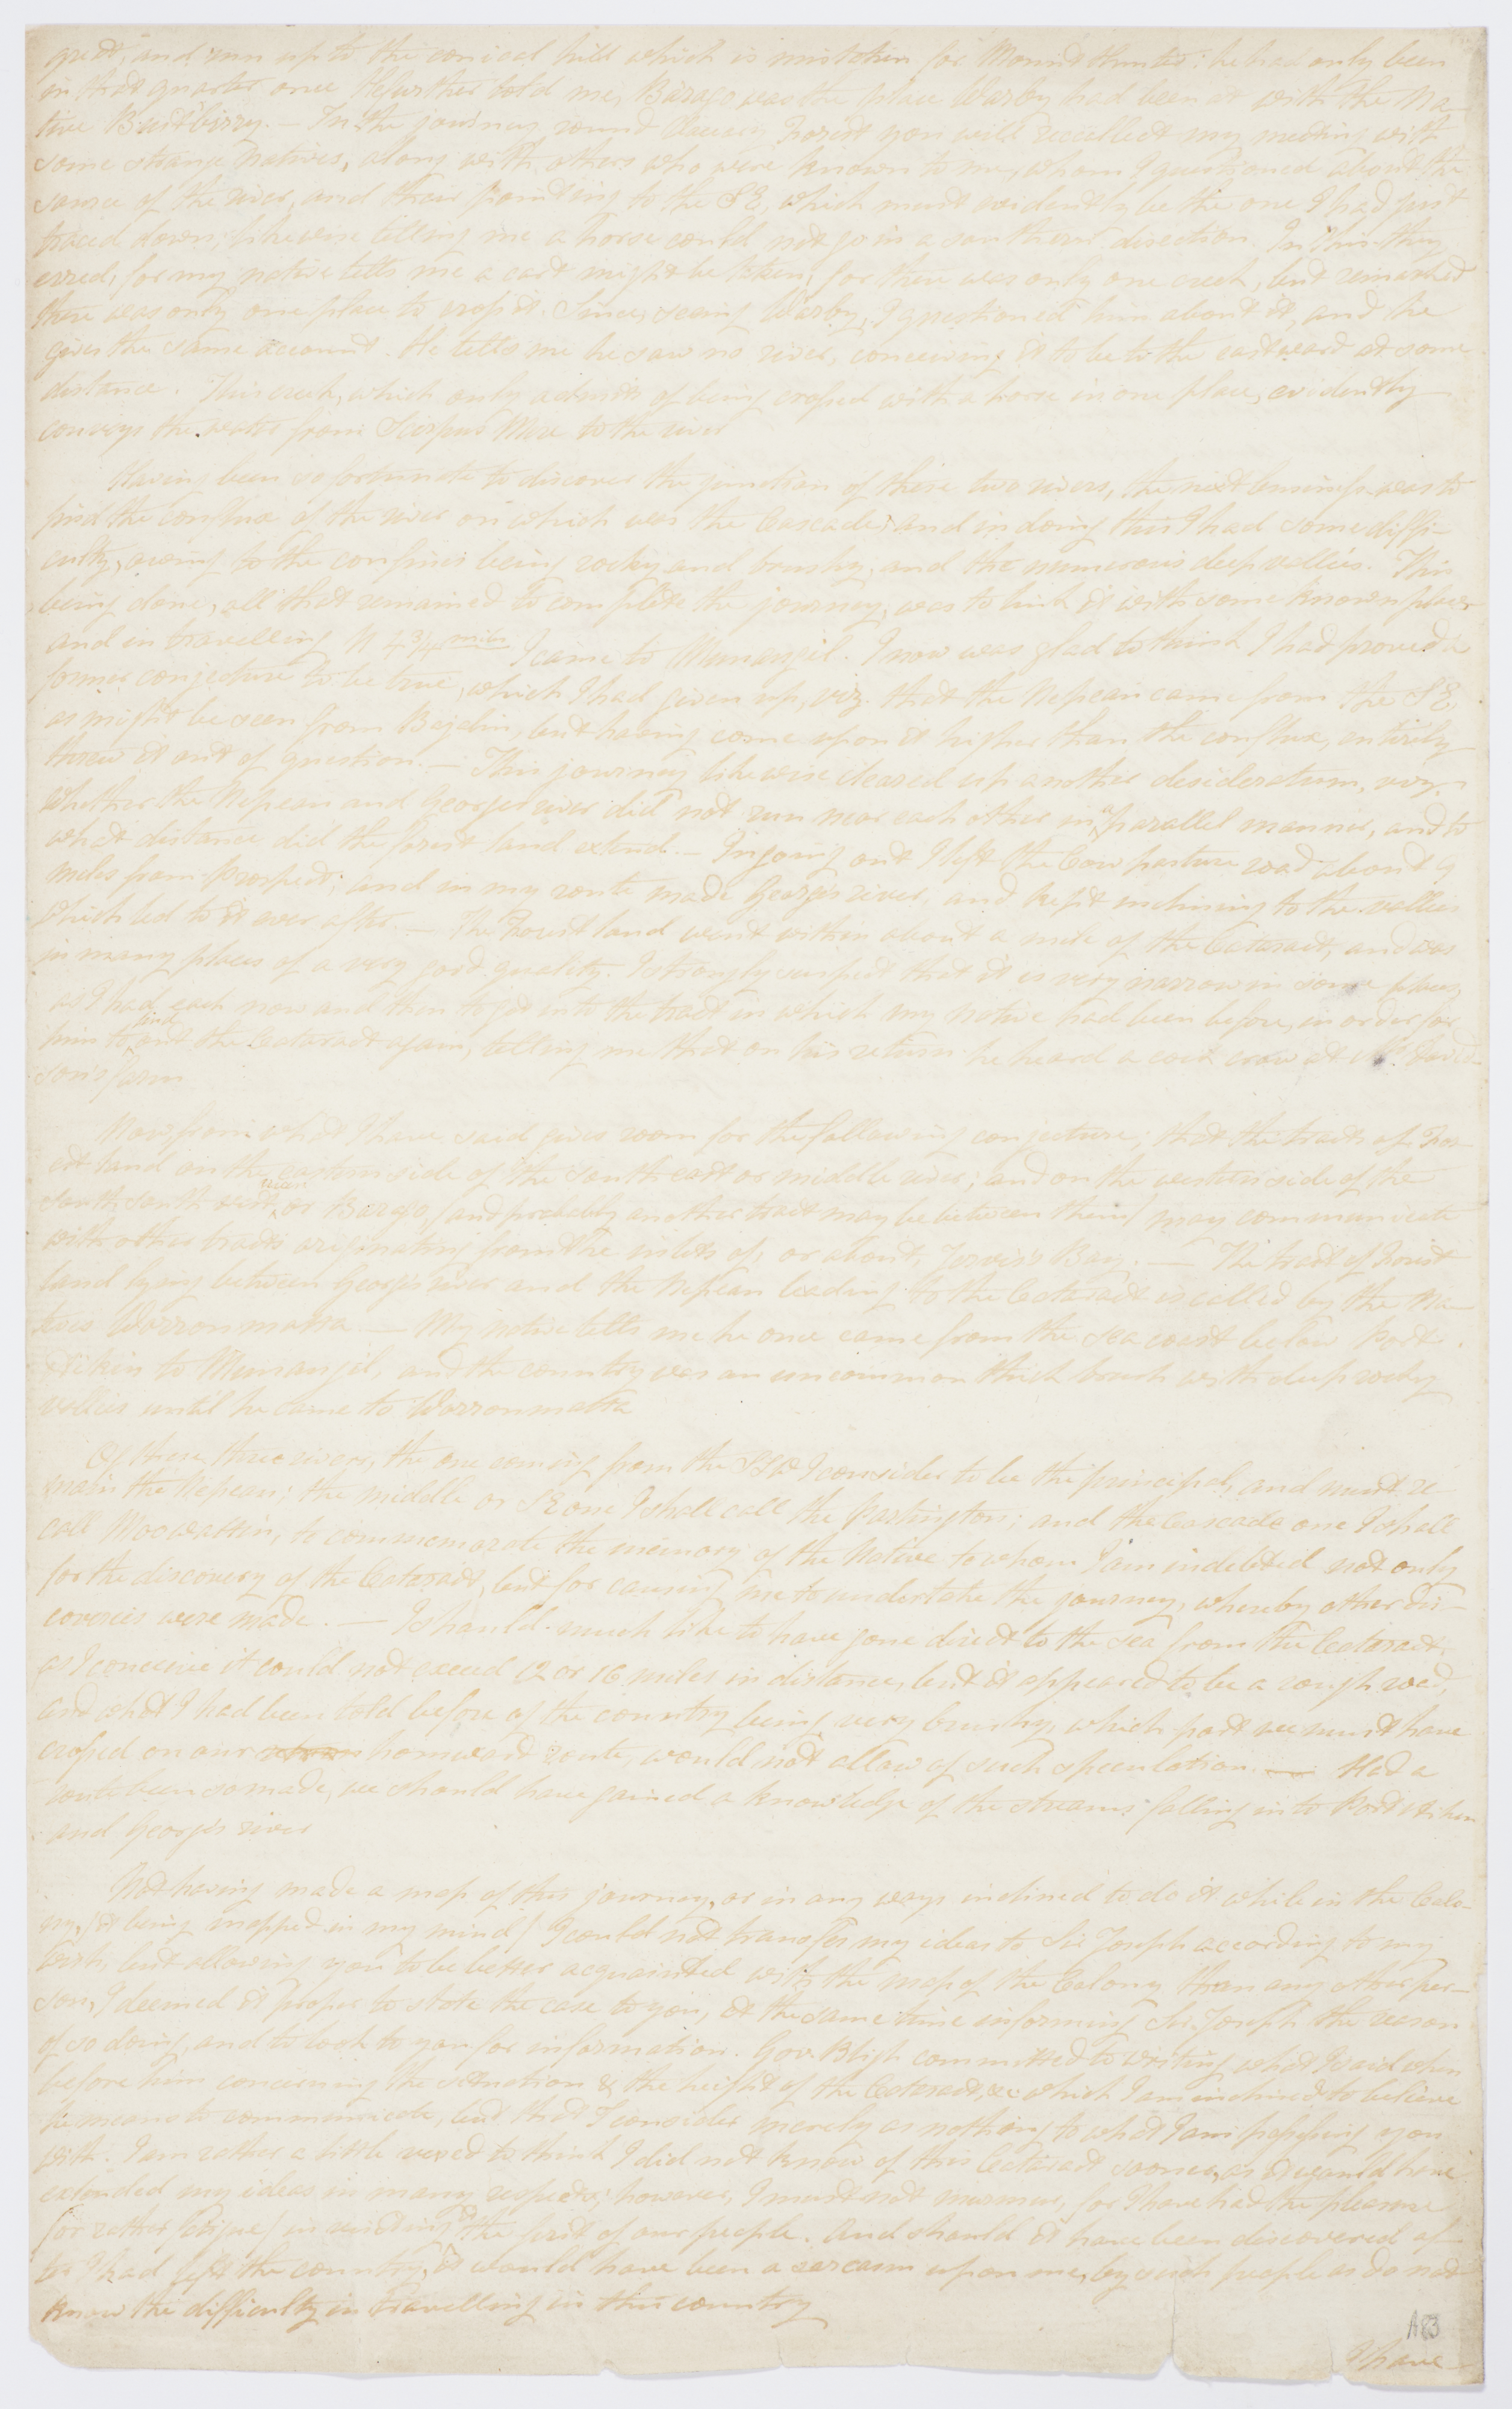 great, and run up to the conical hill which is mistaken for Mount Hunter: he had only been
in that quarter once. He further told me, Barago was the place Warby had been at with the Na-
tive Budbirry. — In the journey round Forest you will recollect my meeting with
some strange Natives, along with others who were known to me, whom I questioned about the
source of the river, and their pointing to the SE, which must evidently be the one I had just
traced down; likewise telling me a horse could not go in a southern direction. In this they
erred, for my native tells me a cart might be taken, for there was only one creek, but remarked
there was only one place to cross it. Since seeing Warby, I questioned him about it, and he
gives the same account. He tells me he saw no river, conceiving it to be to the eastward at some
distance. This creek, which only admits of being crossed with a horse in one place, evidently
conveys the water from Scirpus Mere to the river
Having been so fortunate to discover the junction of these two rivers, the next business was to
find the conflux of the river on which was the Cascade; and in doing this I had some diffi-
culty, owing to the confines being rocky and brushy, and the numerous deep vallies. This
being done, all that remained to complete the journey, was to link it with some known place
and in travelling N 4¾ miles I came to Menangil. I now was glad to think I had proved a
former conjecture to be true, which I had given up, viz. that the Nepean came from the SE,
as might be seen from but having come upon it higher than the conflux, entirely
threw it out of question. — This journey likewise cleared up another desideratum, viz.
whether the Nepean and Georges river did not run near each other in a parallel manner, and to
what distance did the forest land extend. — In going out I left the Cow pasture road about 4
miles from Prospect; and in my route made Georges river, and kept inclining to the vallies
which led to it ever after. — The Forest land went within about a mile of the Cataract, and was
in many places of a very good quality. I strongly suspect that it is very narrow in some places,
as I had each now and then to get into the tract in which my native had been before, in order for
him to find out the Cataract again, telling me that on his return he heard a cock crow at Mr. David-
son's farm
Now from what I have said gives room for the following conjecture; that the tracts of For-
est land on the eastern side of the south east or middle river; and on the western side of the
south south west river, or Barago, (and probably another tract may be between them) may communicate
with other tracts originating from the inlets of, or about, Jervis's Bay. — The tract of Forest
land lying between Georges river and the Nepean leading to the Cataract is called by the Na-
tives Warronmatta — My native tells me he once came from the sea coast below Port
Aikin to Menangil, and the country was an uncommon thick brush with deep rocky
vallies until he came to Warronmatta
Of these three rivers, the one coming from the SSW I consider to be the principal, and must re
main the Nepean; the middle or SE one I shall call the Partington; and the Cascade one I shall
call Moowattin, to commemorate the memory of the Native to whom I am indebted not only
for the discovery of the Cataract, but for causing me to undertake the journey, whereby other dis-
coveries were made. — I should much like to have gone direct to the sea from the Cataract,
as I conceive it could not exceed 12 or 16 miles in distance, but it appeared to be a rough road,
and what I had been told before of the country being very brushy, which part we must have
crossed on our return homeward route, would not allow of such speculation. — Had a
route been so made, we should have gained a knowledge of the streams falling into Port Aiken
and Georges river
Not having made a map of this journey, or in any ways inclined to do it while in the Colo-
ny, (it being mapped in my mind) I could not transfer my ideas to Sir Joseph according to my
wish, but allowing you to be better acquainted with the map of the Colony than any other per-
son, I deemed it proper to state the case to you, at the same time informing Sir Joseph the reason
of so doing, and to look to you for information. Gov. Bligh committed to writing what I said when
before him concerning the situation & the height of the Cataract, &c which I am inclined to believe
he means to communicate, but that I consider merely as nothing to what I am possessing you
with. I am rather a little vexed to think I did not know of this Cataract sooner, as it would have
extended my ideas in many respects; however, I must not murmur, for I have had the pleasure
(or rather fatigue) in visiting it the first of our people. And should it have been discovered af-
ter I had left the country, it would have been a sarcasm upon me, by such people as do not
know the difficulty in travelling in this country
A83
I have